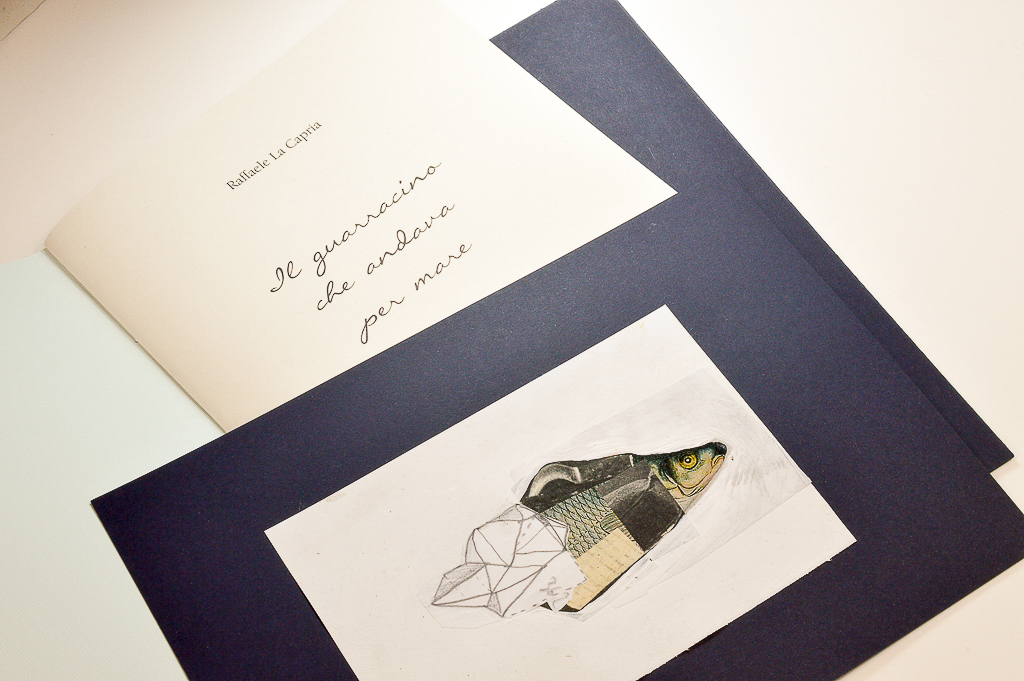 Raffaele La Capria
Il guarracino
che andava
per mare